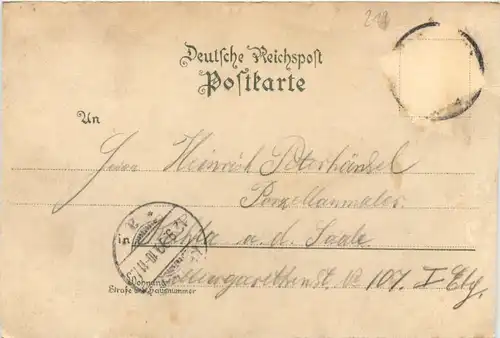 218
Deutsche Reichspost
Postkarte
An
Herrn Heinrich Peterhänsel
Porzellanmaler
in Kahla a. d. Saale
Wohnung
Straße u. Hausnummer
Margarethenst. No 107. I Etg.